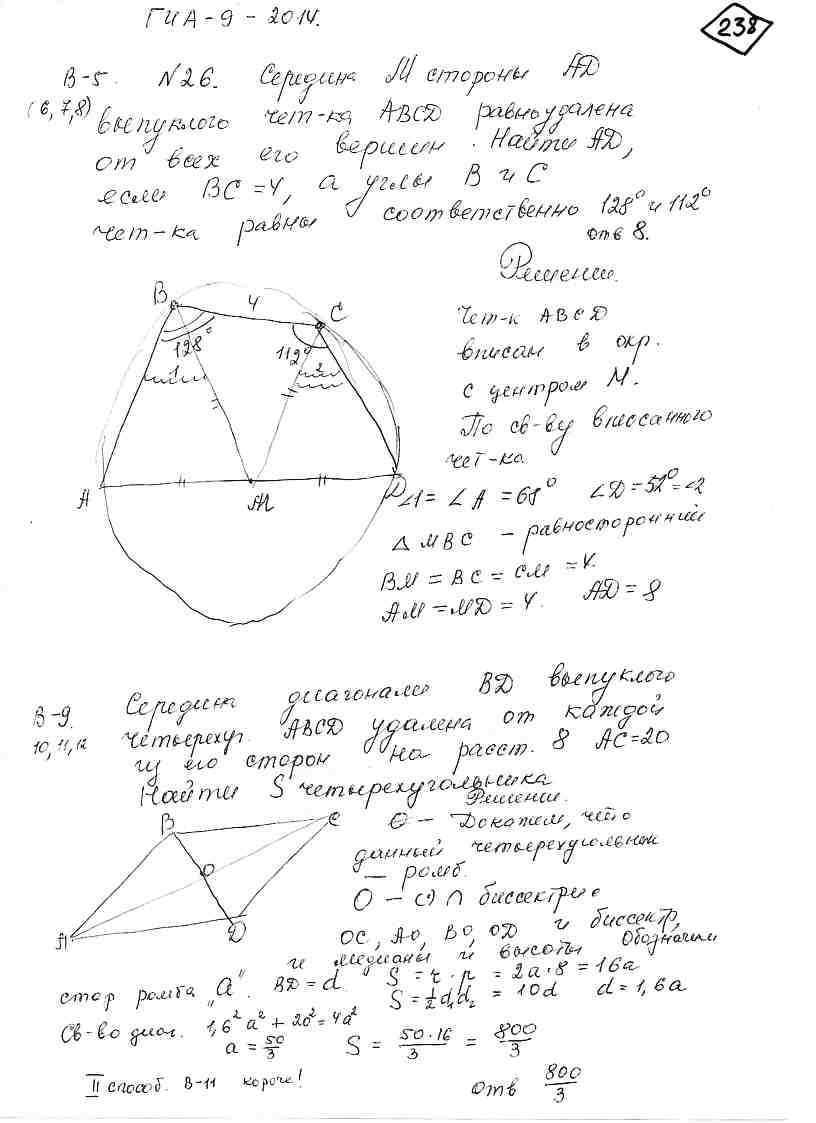 ГИА-9-2014.
238
В-5. №26. Середина М стороны AD
(6,7,8) выпуклого чет-ка ABCD равноудалена
от всех его вершин. Найти AD,
если BC=4, а углы B и C
чет-ка равны соответственно 128° и 112°
отв 8.
Решение.
B 4 C
128° 112°
1 2
A M D
Чет-к ABCD
вписан в окр.
с центром М.
По св-ву вписанного
чет-ка
∠1=∠A=68° ∠D=52°=∠2
△MBC – равносторонний
BM=BC=CM=4.
AM=MD=4. AD=8
В-9. Середина диагонали BD выпуклого
10,11,12 четырехуг. ABCD удалена от каждой
из его сторон на расст. 8 AC=20
Найти S четырехугольника
Решение.
B C
O
A D
O – Докажем, что
данный четырехугольник
– ромб.
O – ∩ биссектрис
OC, AO, BO, OD и биссектр,
и медианы и высоты Обозначим
стор ромба "a". BD=d S=r·p=2a·8=16a
S=½d₁d₂=10d d=1,6a
Св-во диаг. 1,6²a²+20²=4a²
a=50/3 S=50·16/3=800/3
II способ. В-11 короче!
Отв 800/3